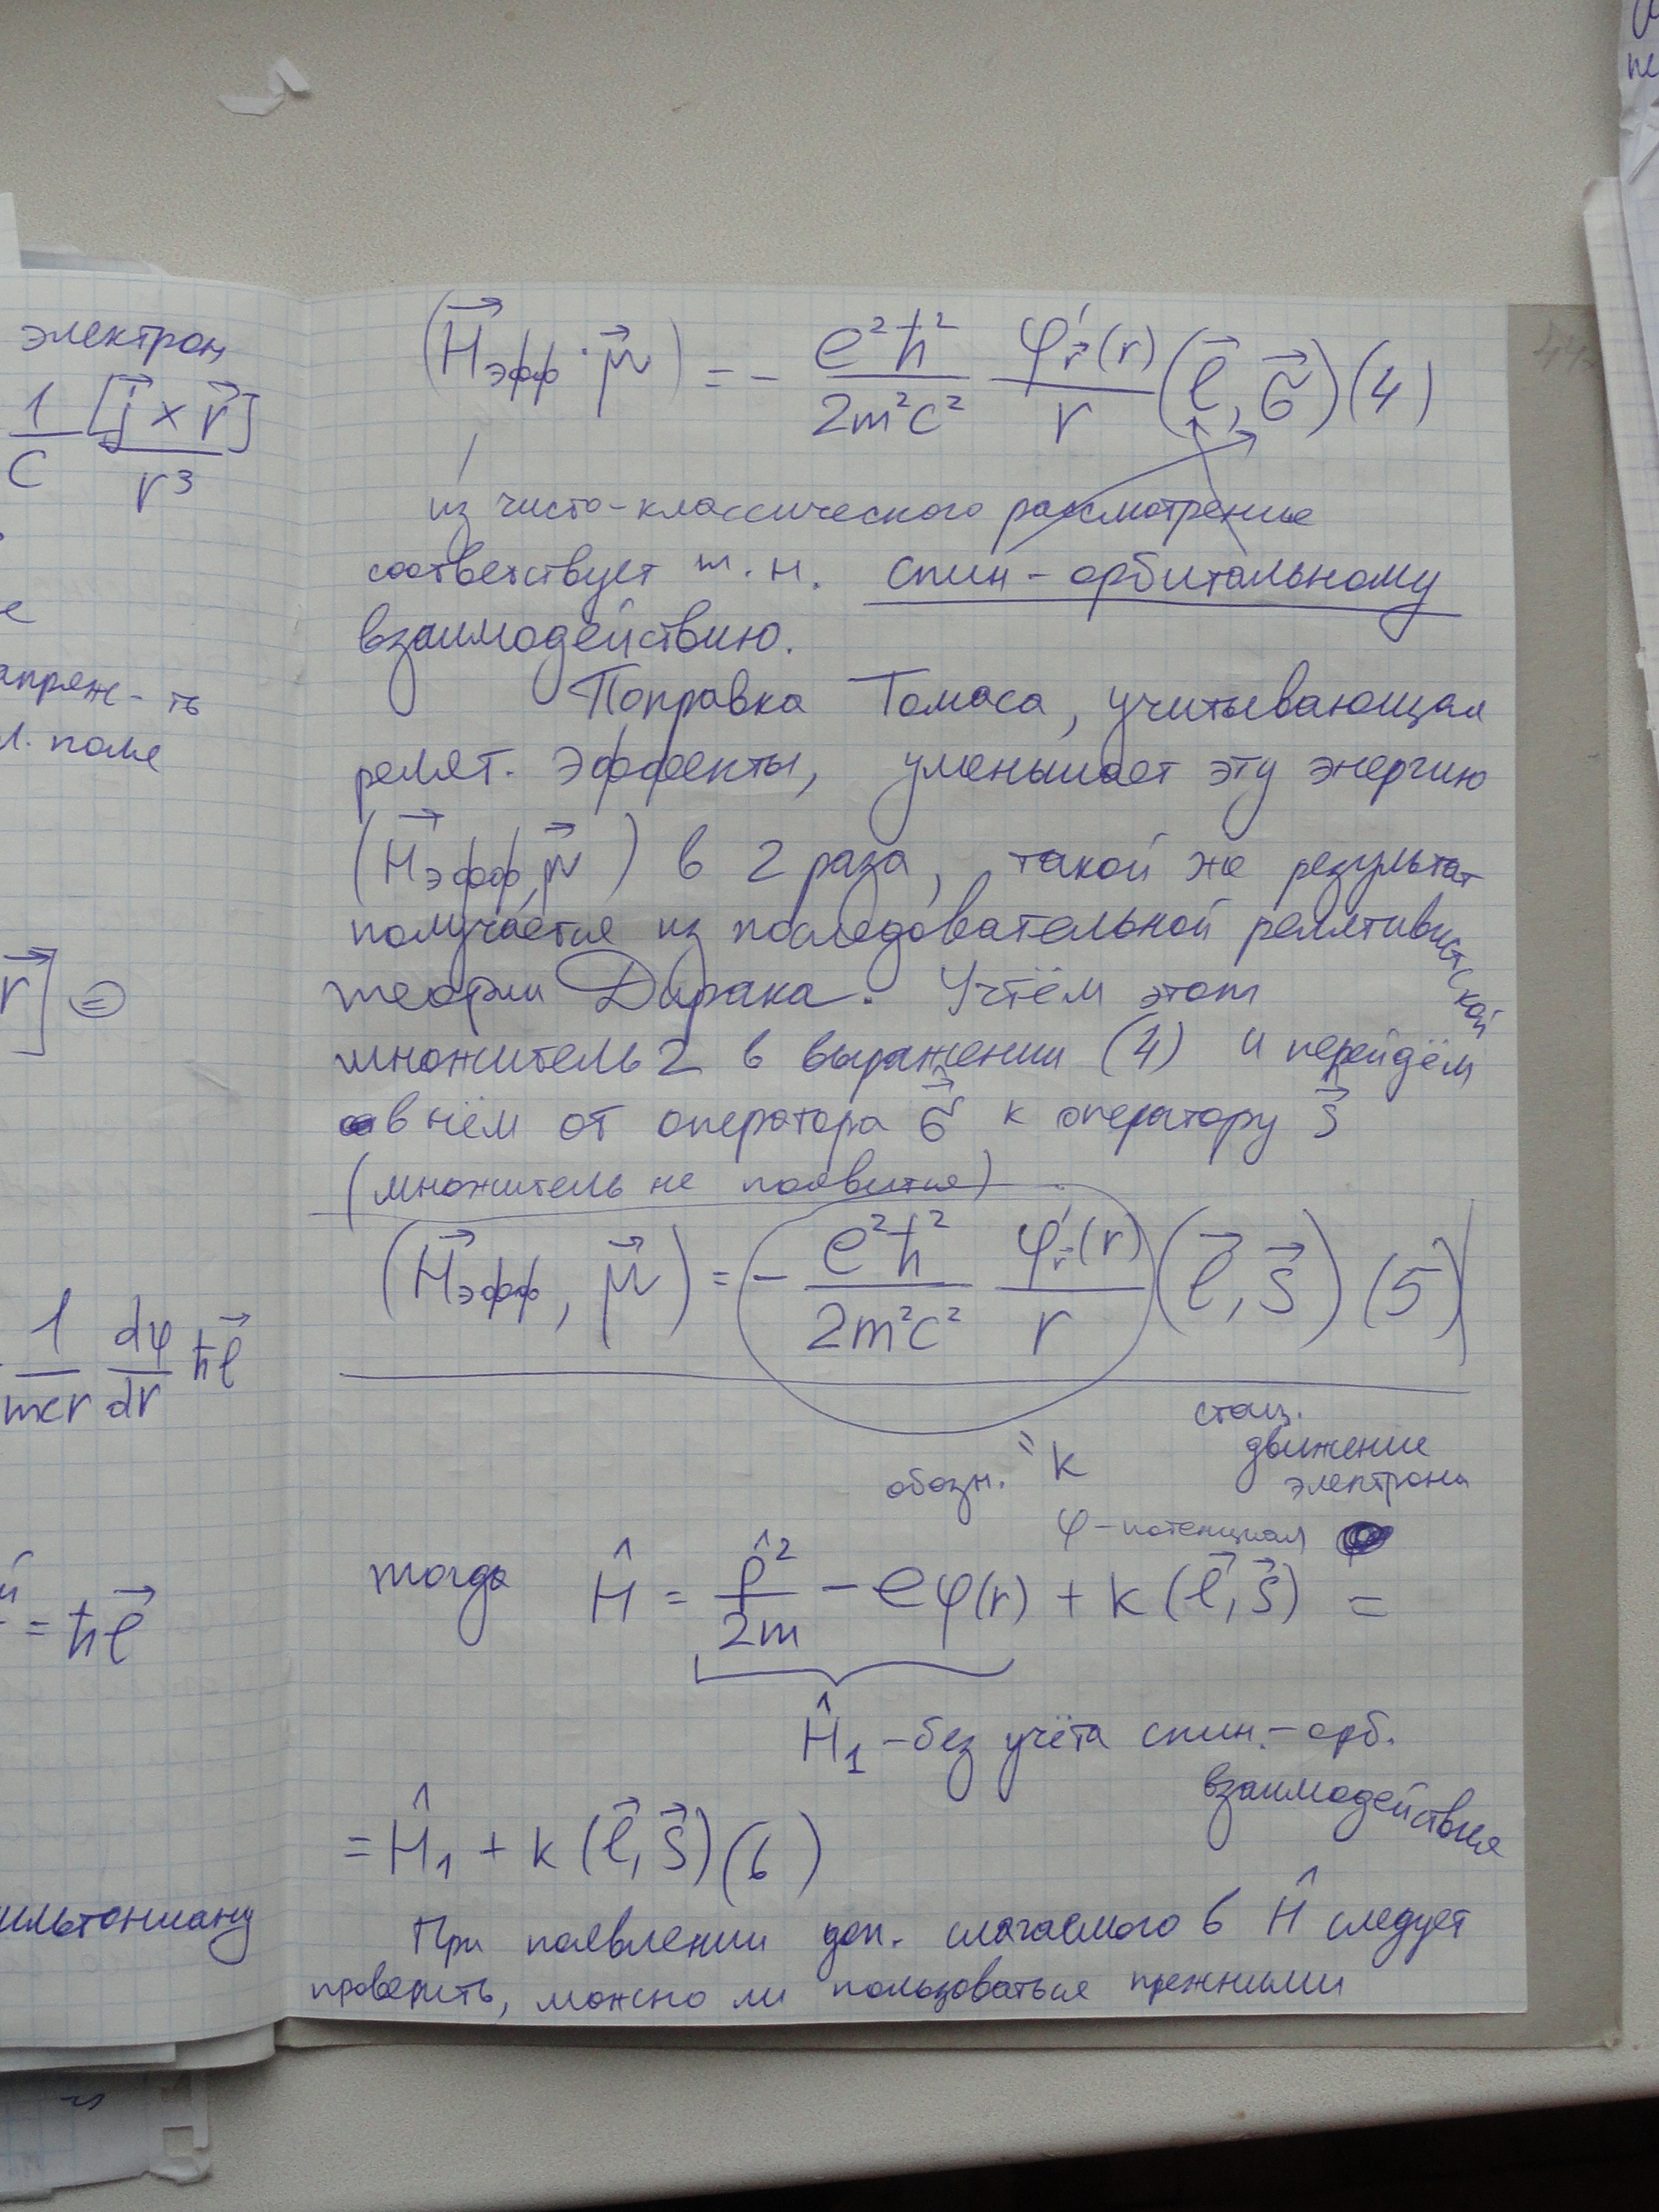 электрон
1/c [j⃗ × r⃗]/r³
апряж-ть
л. поле
r⃗] =
1/mcr dφ/dr ħℓ⃗
= ħℓ⃗
ильтониану
(H⃗эфф · μ⃗) = − e²ħ²/2m²c² φ'r(r)/r (ℓ⃗, σ⃗) (4)
из чисто-классического рассмотрение
соответствует т. н. спин-орбитальному
взаимодействию.
Поправка Томаса, учитывающая
релят. эффекты, уменьшает эту энергию
(H⃗эфф, μ⃗) в 2 раза, такой же результат
получается из последовательной релятивистской
теории Дирака. Учтём этот
множитель 2 в выражении (4) и перейдём
в нём от оператора σ⃗ к оператору s⃗
(множитель не появится)
(H⃗эфф, μ⃗) = − e²ħ²/2m²c² φ'r(r)/r (ℓ⃗, s⃗) (5)
обозн. = k
стац.
движение
электрона
φ-потенциал
тогда Ĥ = p̂²/2m − eφ(r) + k(ℓ⃗, s⃗) =
Ĥ₁ - без учёта спин.-орб.
взаимодействия
= Ĥ₁ + k(ℓ⃗, s⃗) (6)
При появлении доп. слагаемого в Ĥ следует
проверить, можно ли пользоваться прежними